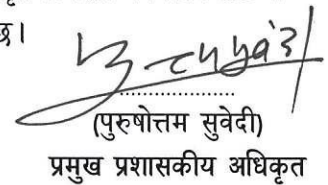 छ।
....................
(पुरुषोत्तम सुवेदी)
प्रमुख प्रशासकीय अधिकृत